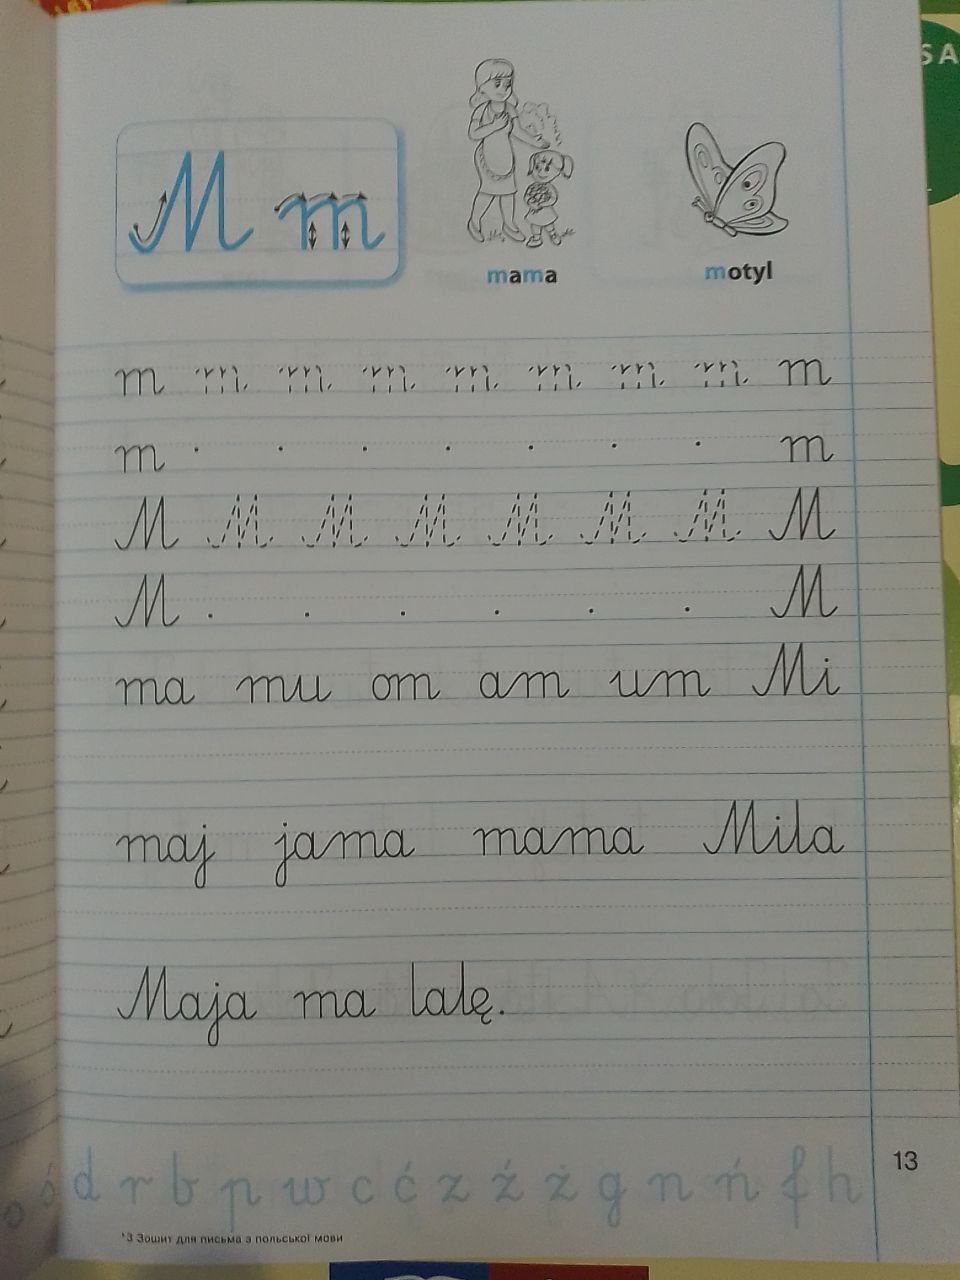 S A
M m
mama motyl
m m m m m m m m m
m m
M M M M M M M M
M M
ma mu om am um Mi
maj jama mama Mila
Maja ma lalę.
ó d r b p w c ć z ź ż g n ń f h
13
*3 Зошит для письма з польської мови